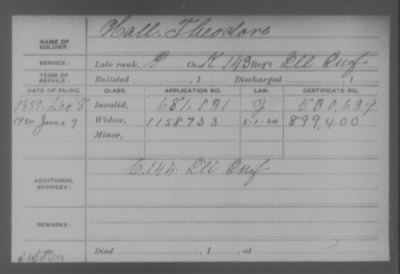 NAME OF SOLDIER: Hall, Theodore
SERVICE: Late rank, P Co. K, 143 Reg't Ill Inf
TERM OF SERVICE: Enlisted , 1 Discharged , 1
DATE OF FILING. CLASS. APPLICATION NO. LAW. CERTIFICATE NO.
Dec 8 Invalid, 681,091
1920 June 9 Widow, 1158733 5-1-20 899,400
Minor,
ADDITIONAL SERVICES: C. 144 Ill Inf
REMARKS:
Died , 1 , at